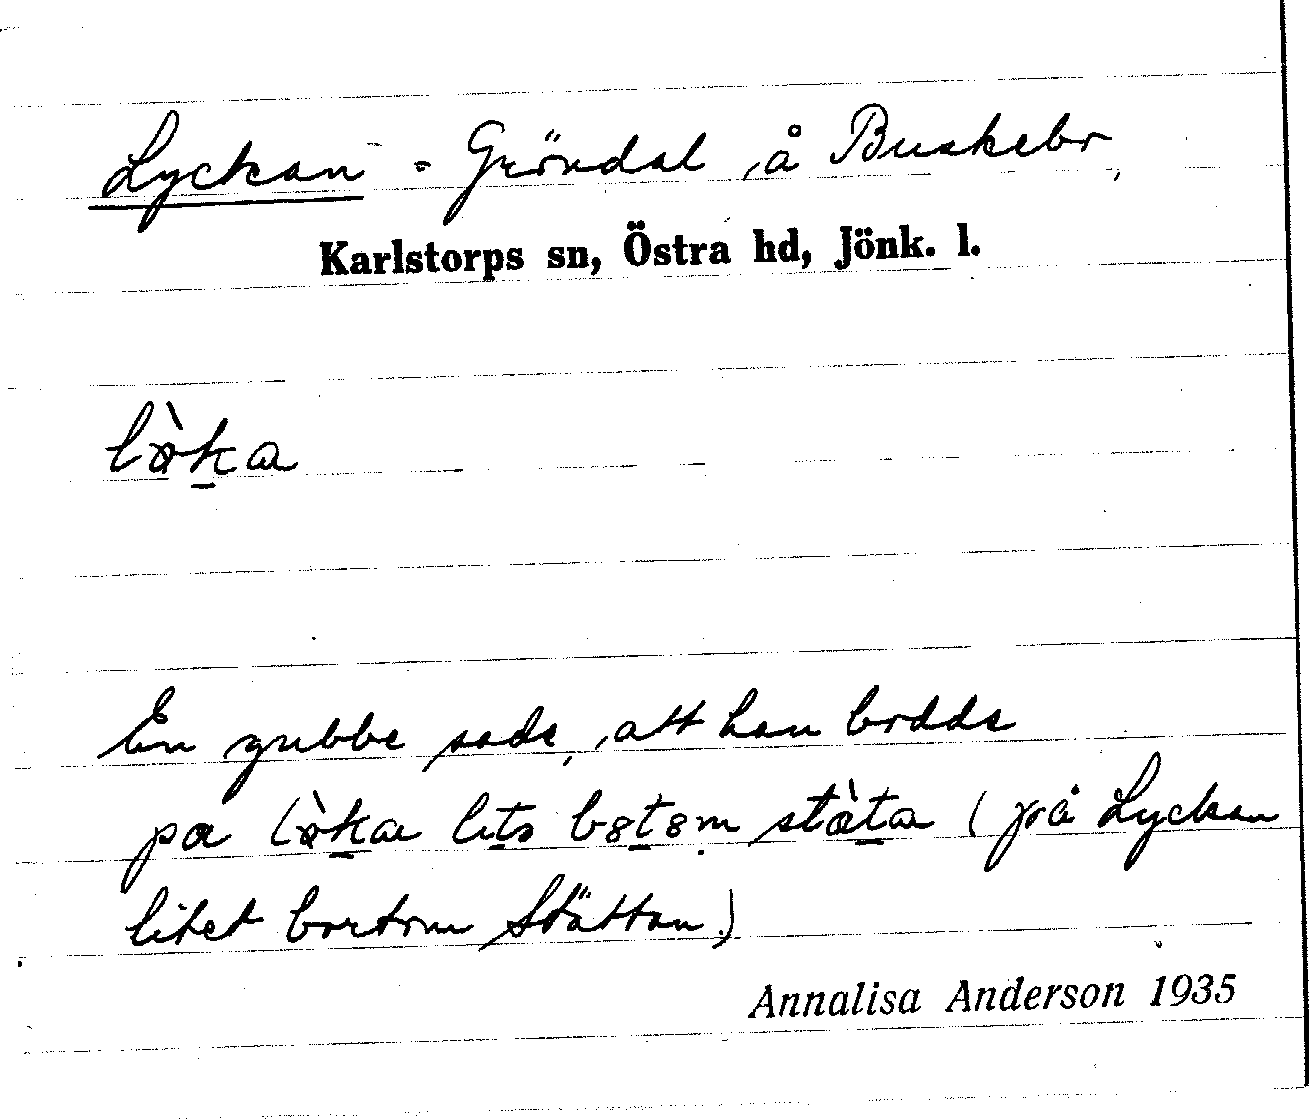 Lyckan = Gröndal, å Buskebo,
Karlstorps sn, Östra hd, Jönk. l.
lø̀ka
En gubbe sade, att han bodde
pa lø̀ka
stàta (på Lyckan
litet bortom Stättan.)
Annalisa Anderson 1935